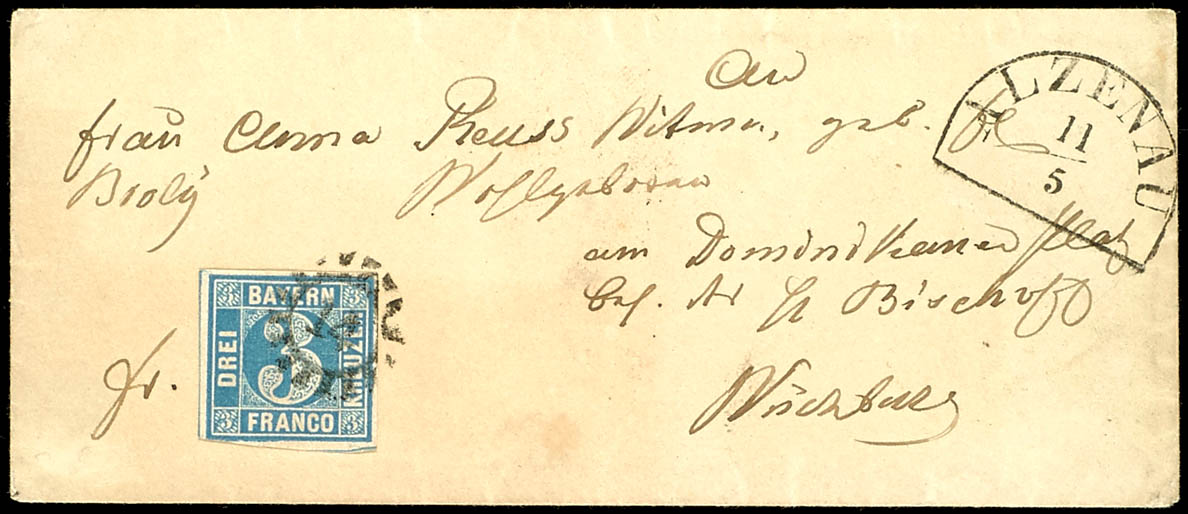 An
Frau Anna Reuss Witwe, geb.
Broly Wohlgeboren
am Dominikaner Platz
bei H Bischoff
Würzburg
fr.
ALZENAU
11
5
BAYERN
DREI 3 KREUZE
FRANCO